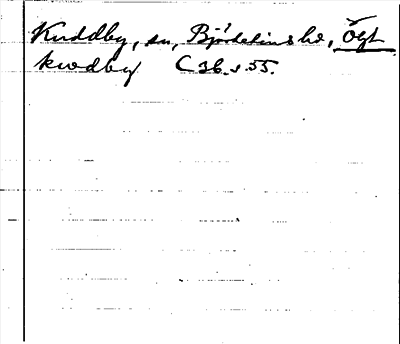 Kuddby, sn, Björkekinds hd, Ögl
kwdby C 36. s. 55.